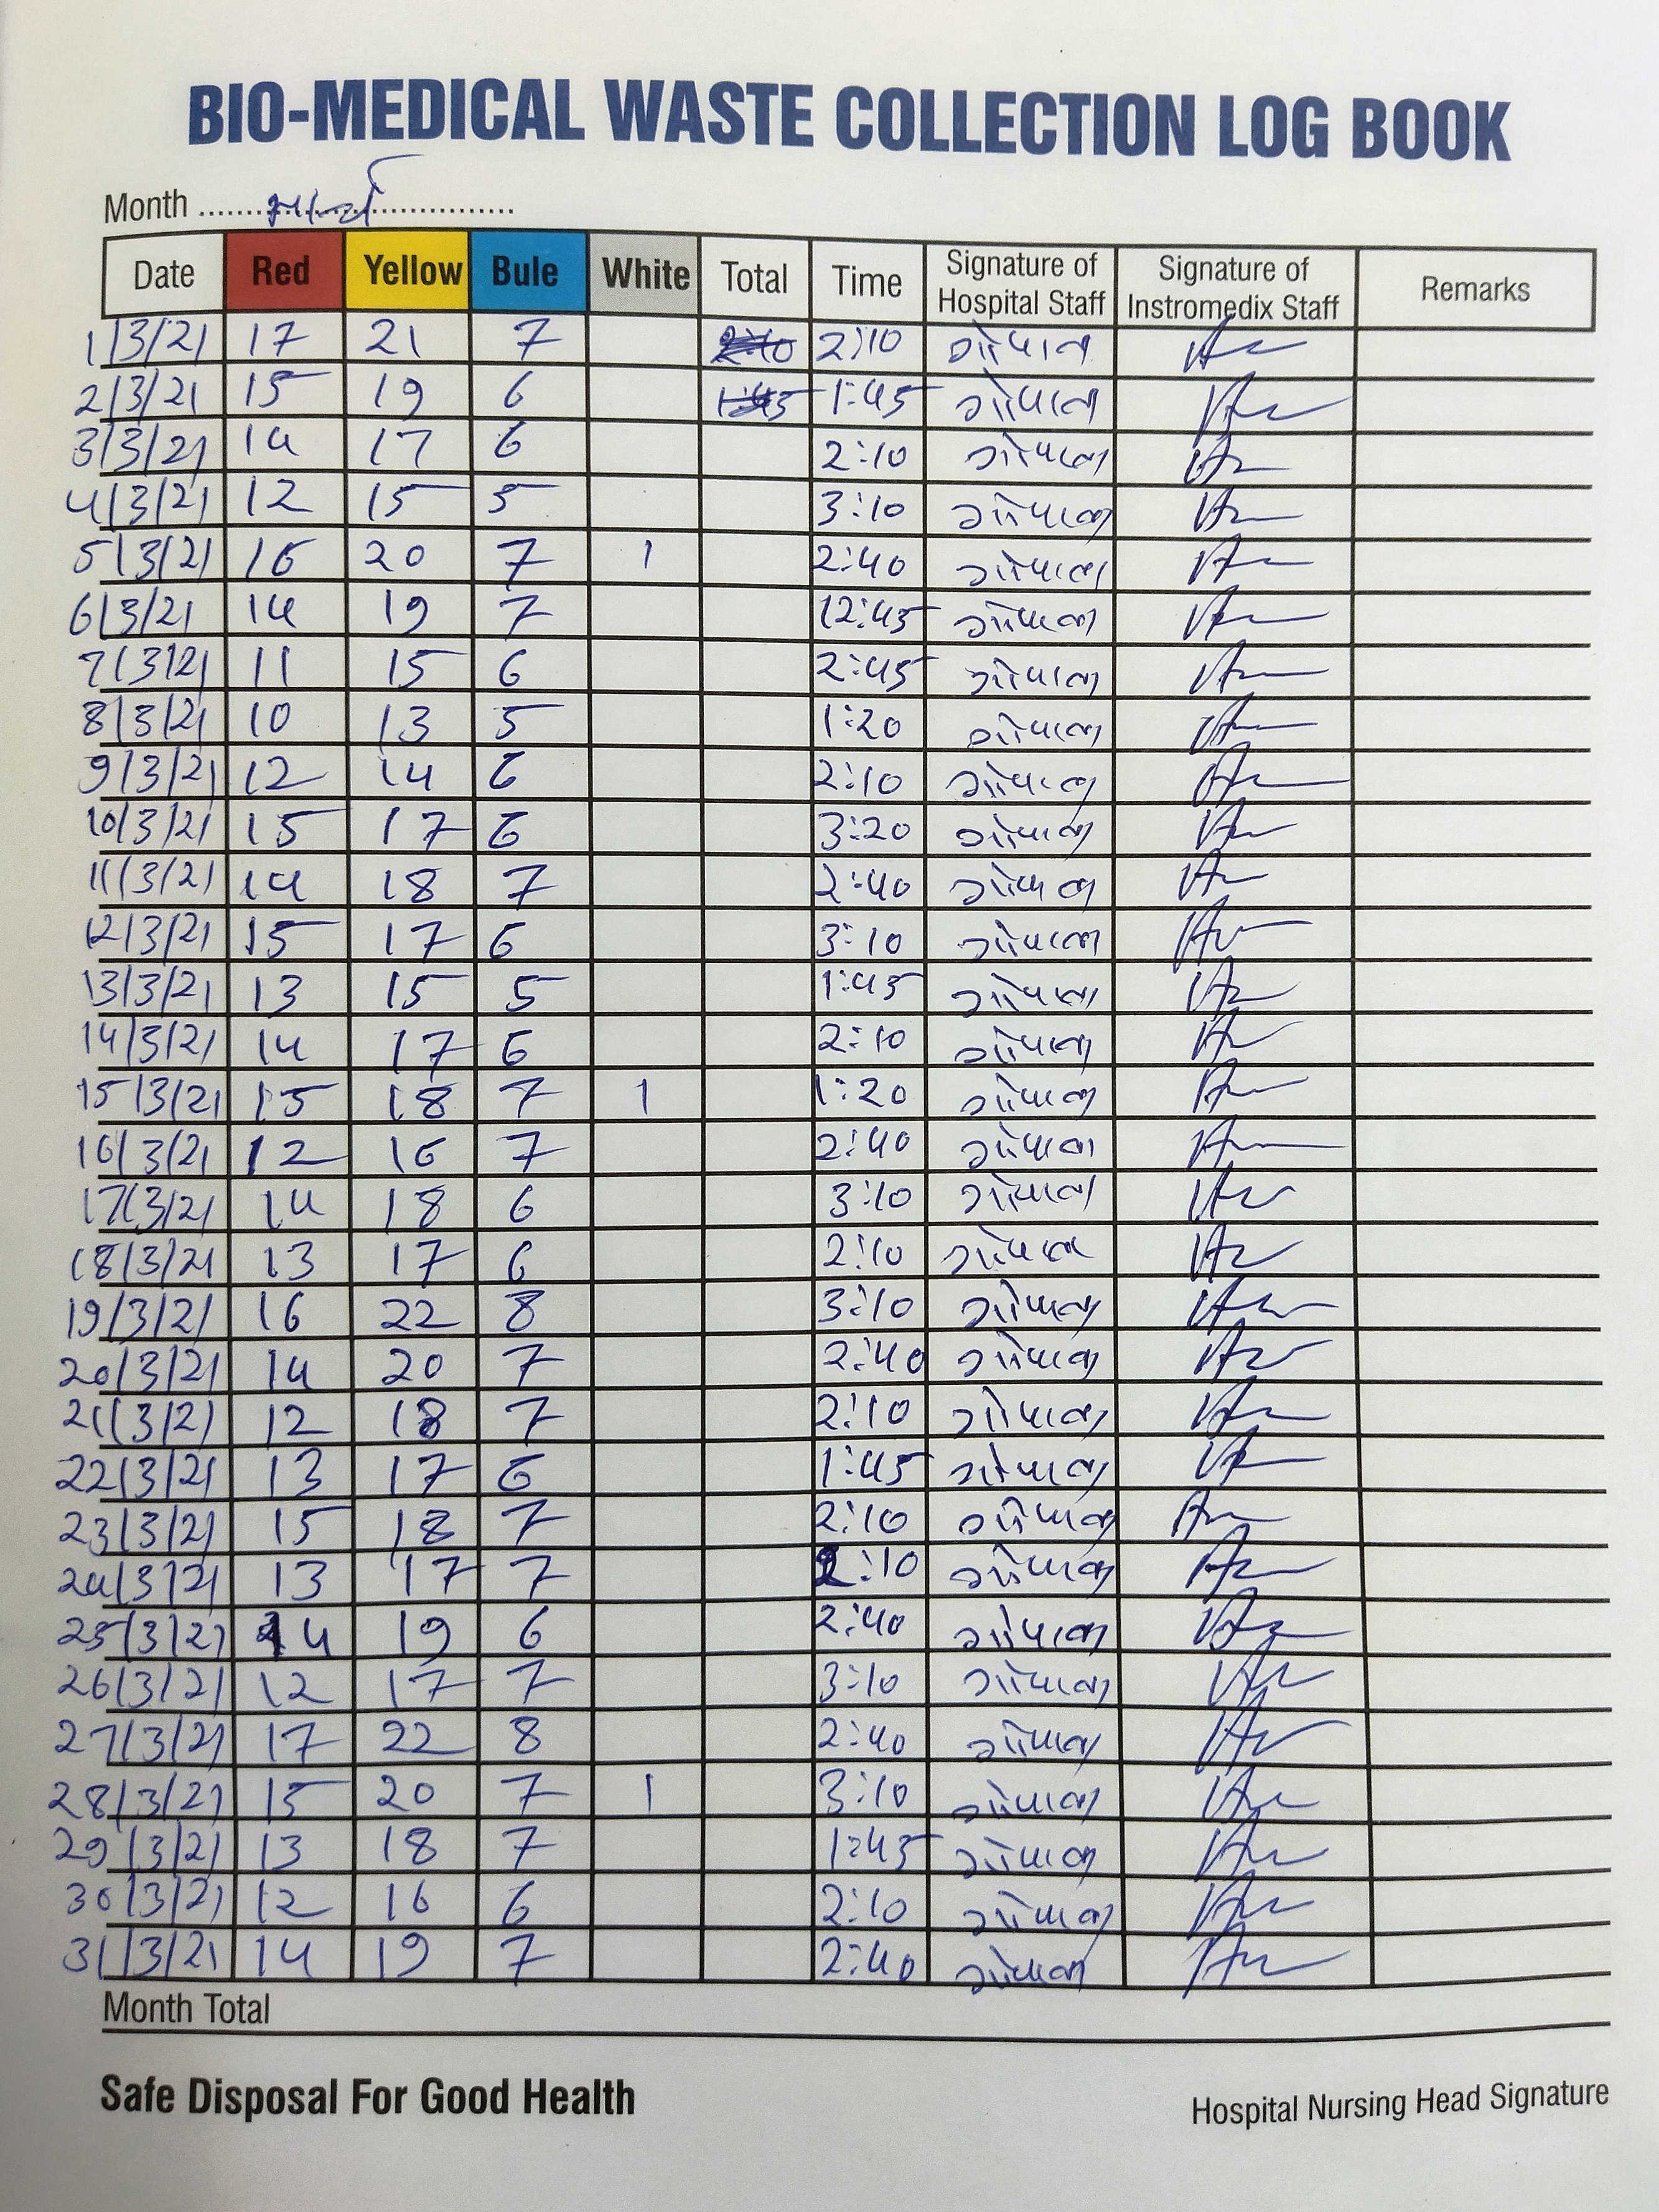 BIO-MEDICAL WASTE COLLECTION LOG BOOK
Month .......................................
Date Red Yellow Bule White Total Time Signature of Hospital Staff Signature of Instromedix Staff Remarks
1/3/21 17 21 7 2:10 2:10 ગોપાલ
2/3/21 15 19 6 1:45 1:45 ગોપાલ
3/3/21 14 17 6 2:10 ગોપાલ
4/3/21 12 15 5 3:10 ગોપાલ
5/3/21 16 20 7 1 2:40 ગોપાલ
6/3/21 14 19 7 12:45 ગોપાલ
7/3/21 11 15 6 2:45 ગોપાલ
8/3/21 10 13 5 1:20 ગોપાલ
9/3/21 12 14 6 2:10 ગોપાલ
10/3/21 15 17 6 3:20 ગોપાલ
11/3/21 14 18 7 2:40 ગોપાલ
12/3/21 15 17 6 3:10 ગોપાલ
13/3/21 13 15 5 1:45 ગોપાલ
14/3/21 14 17 6 2:10 ગોપાલ
15/3/21 15 18 7 1 1:20 ગોપાલ
16/3/21 12 16 7 2:40 ગોપાલ
17/3/21 14 18 6 3:10 ગોપાલ
18/3/21 13 17 6 2:10 ગોપાલ
19/3/21 16 22 8 3:10 ગોપાલ
20/3/21 14 20 7 2:40 ગોપાલ
21/3/21 12 18 7 2:10 ગોપાલ
22/3/21 13 17 6 1:45 ગોપાલ
23/3/21 15 18 7 2:10 ગોપાલ
24/3/21 13 17 7 2:10 ગોપાલ
25/3/21 14 19 6 2:40 ગોપાલ
26/3/21 12 17 7 3:10 ગોપાલ
27/3/21 17 22 8 2:40 ગોપાલ
28/3/21 15 20 7 1 3:10 ગોપાલ
29/3/21 13 18 7 1:45 ગોપાલ
30/3/21 12 16 6 2:10 ગોપાલ
31/3/21 14 19 7 2:40 ગોપાલ
Month Total
Safe Disposal For Good Health
Hospital Nursing Head Signature